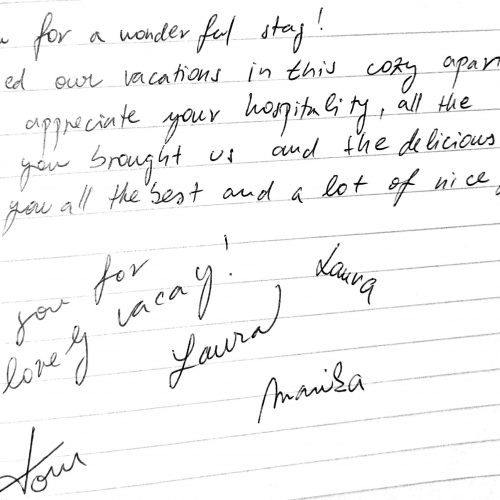 for a wonderful stay!
ed our vacations in this cozy apar
appreciate your hospitality, all the
you brought us and the delicious
you all the best and a lot of nice
you for
lovely vacay!
Laura
Laura